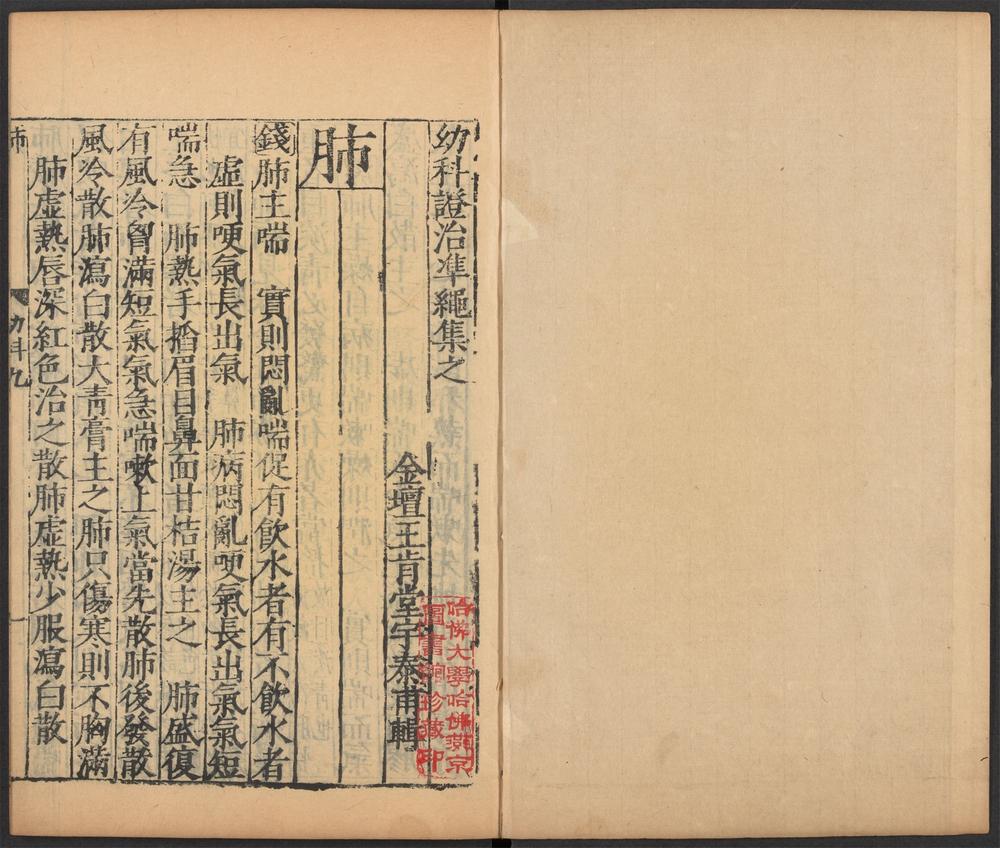 幼科證治準繩集之
金壇王肯堂宇泰甫輯
哈佛大學哈佛燕京
圖書館珍藏印
肺
錢肺主喘　實則悶亂喘促有飲水者有不飲水者
虛則哽氣長出氣　肺病悶亂哽氣長出氣氣短
喘急　肺熱手搯眉目鼻面甘桔湯主之　肺盛復
有風冷胷滿短氣氣急喘嗽上氣當先散肺後發散
風冷散肺瀉白散大青膏主之肺只傷寒則不胸滿
肺虛熱唇深紅色治之散肺虛熱少服瀉白散
肺
幼科九
一